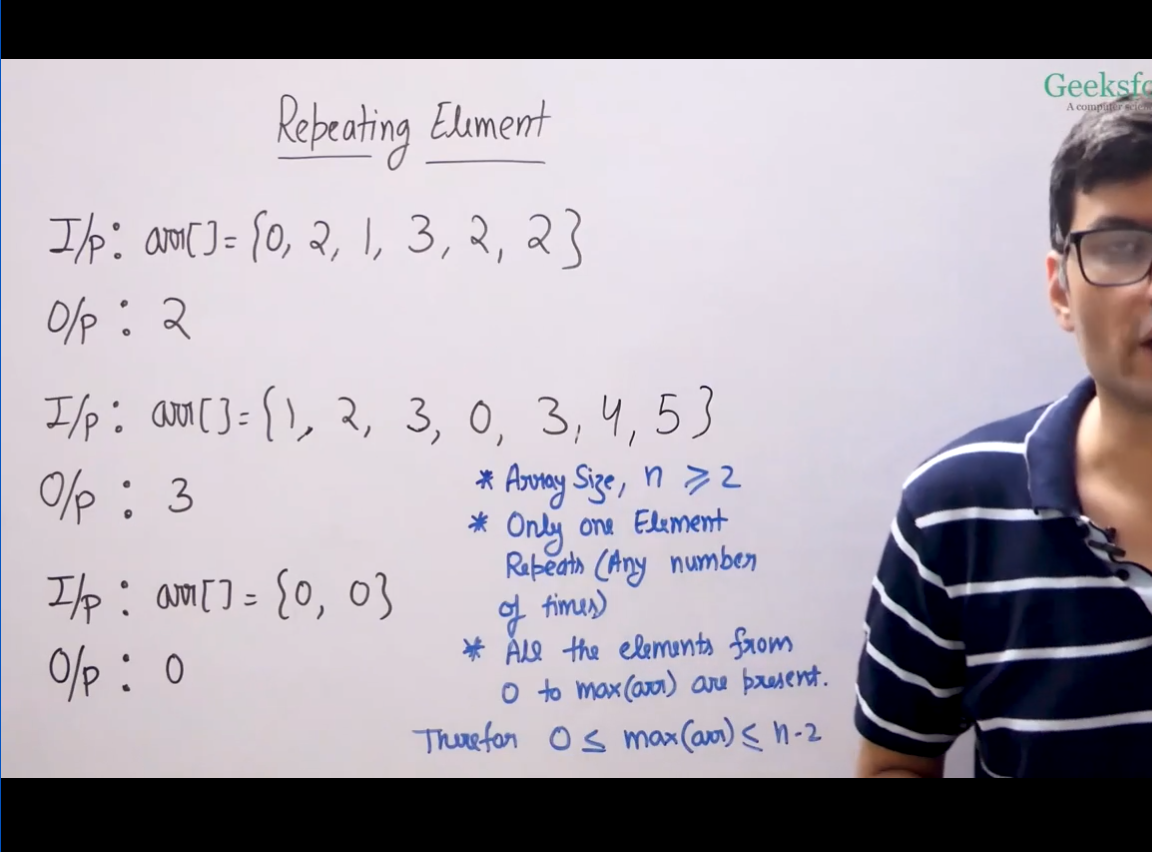 Geeksfo
A computer scien
Repeating Element
I/p: arr[]= {0, 2, 1, 3, 2, 2}
O/p : 2
I/p: arr[]= {1, 2, 3, 0, 3, 4, 5}
O/p : 3
* Array Size, n ⩾ 2
* Only one Element
Repeats (Any number
of times)
I/p : arr[] = {0, 0}
O/p : 0
* All the elements from
0 to max(arr) are present.
Therefor 0 ≤ max(arr) ≤ n-2